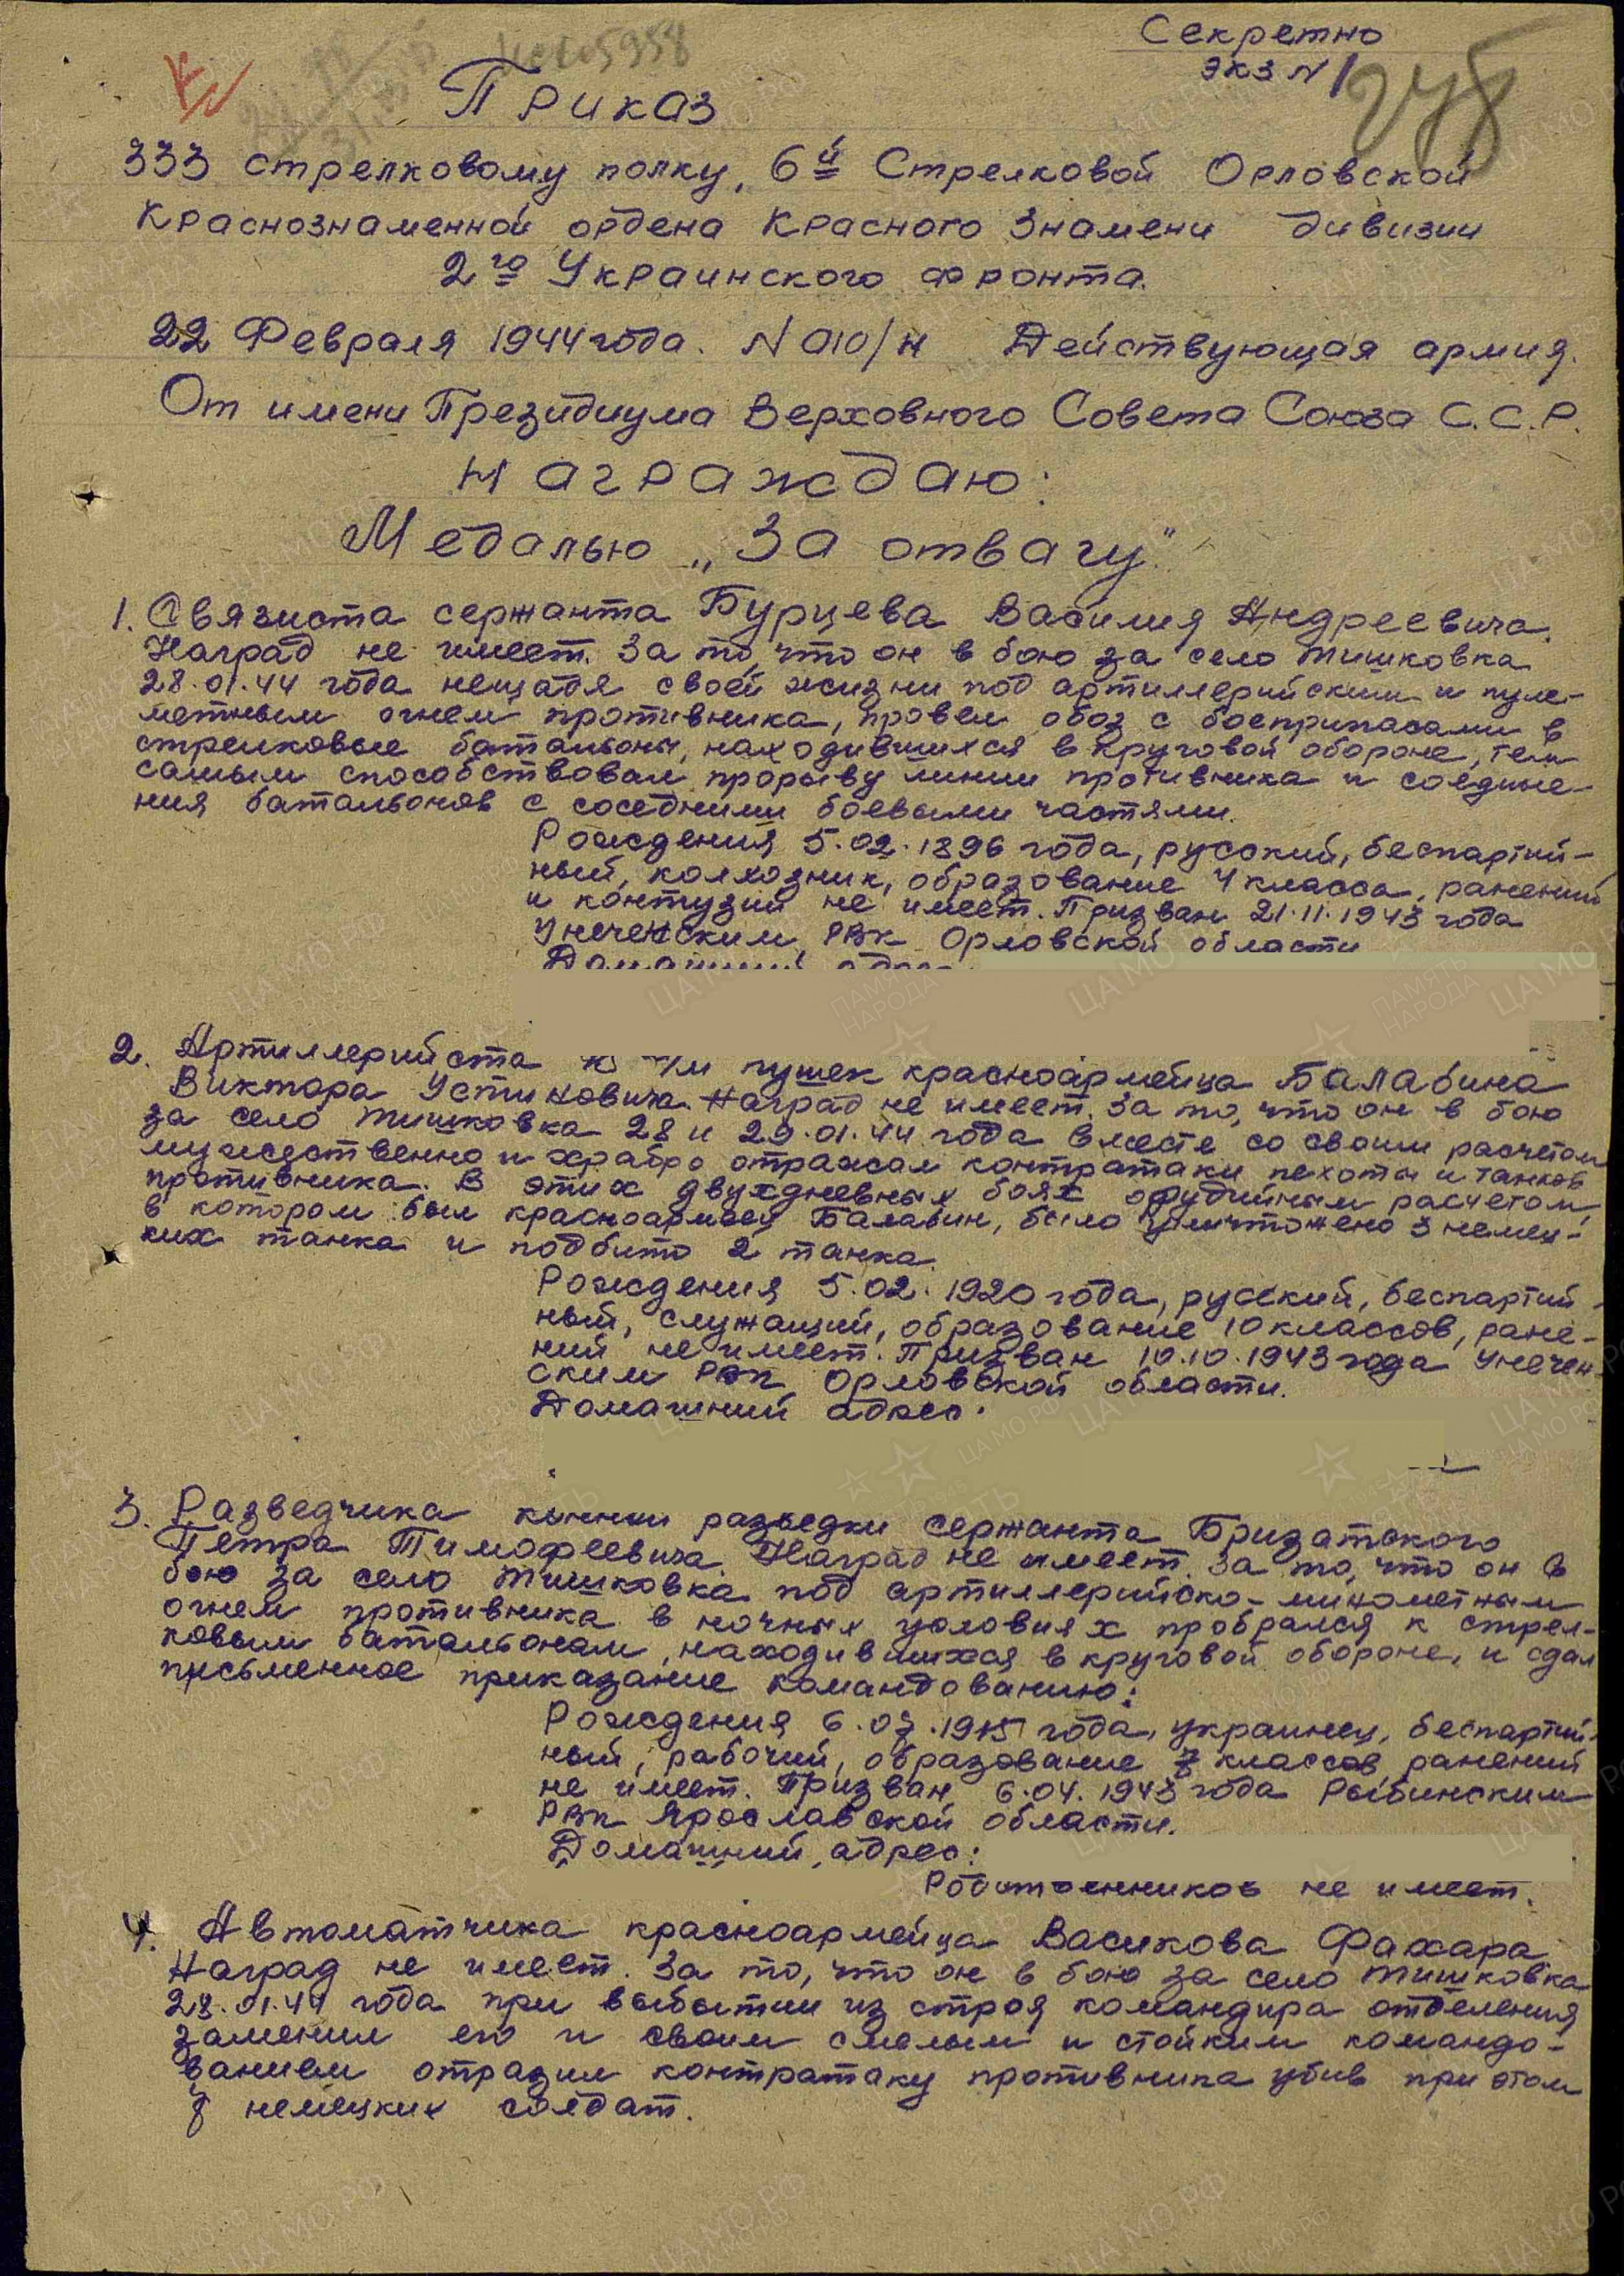 Секретно
экз N 1
Приказ
333 стрелковому полку, 6й Стрелковой Орловской
Краснознаменной ордена Красного Знамени дивизии
2го Украинского фронта.
22 Февраля 1944 года. N 010/н Действующая армия.
От имени Президиума Верховного Совета Союза С.С.Р.
Награждаю:
Медалью „За отвагу"
1. Связиста сержанта Бурцева Василия Андреевича.
Наград не имеет. За то, что он в бою за село Тишковка
28.01.44 года нещадя своей жизни под артиллерийским и пуле-
метным огнем противника, провел обоз с боеприпасами в
стрелковые батальоны, находившихся в круговой обороне, тем
самым способствовал прорыву линии противника и соедине-
ния батальонов с соседними боевыми частями.
Рождения 5.02.1896 года, русский, беспартий-
ный, колхозник, образование 4 класса, ранений
и контузий не имеет. Призван 21.11.1943 года
Унеченским РВК Орловской области
Домашний адрес
2. Артиллерийста пушек красноармейца Балабина
Виктора Устиновича. Наград не имеет. За то, что он в бою
за село Тишковка 28 и 29.01.44 года вместе со своим расчетом
мужественно и храбро отражал контратаки пехоты и танков
противника. В этих двухдневных боях орудийным расчетом,
в котором был красноармеец Балабин, было уничтожено 3 немец-
ких танка и подбито 2 танка.
Рождения 5.02.1920 года, русский, беспартий-
ный, служащий, образование 10 классов, ране-
ний не имеет. Призван 10.10.1943 года Унечен-
ским РВК Орловской области.
Домашний адрес:
3. Разведчика конной разведки сержанта Бризатского
Петра Тимофеевича. Наград не имеет. За то, что он в
бою за село Тишковка под артиллерийско-минометным
огнем противника в ночных условиях пробрался к стрел-
ковым батальонам, находившихся в круговой обороне, и сдал
письменное приказание командованию:
Рождения 6.07.1915 года, украинец, беспартий-
ный, рабочий, образование 7 классов, ранений
не имеет. Призван 6.04.1943 года Рыбинским
РВК Ярославской области.
Домашний адрес:
Родственников не имеет.
4. Автоматчика красноармейца Васикова Фахара
Наград не имеет. За то, что он в бою за село Тишковка
28.01.44 года при выбытии из строя командира отделения
заменил его и своим смелым и стойким командо-
ванием отразил контратаку противника убив при этом
немецких солдат.